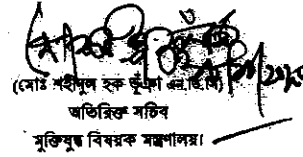 (মোঃ শহীদুল হক ভূঁঞা এনডিসি)
অতিরিক্ত সচিব
মুক্তিযুদ্ধ বিষয়ক মন্ত্রণালয়।